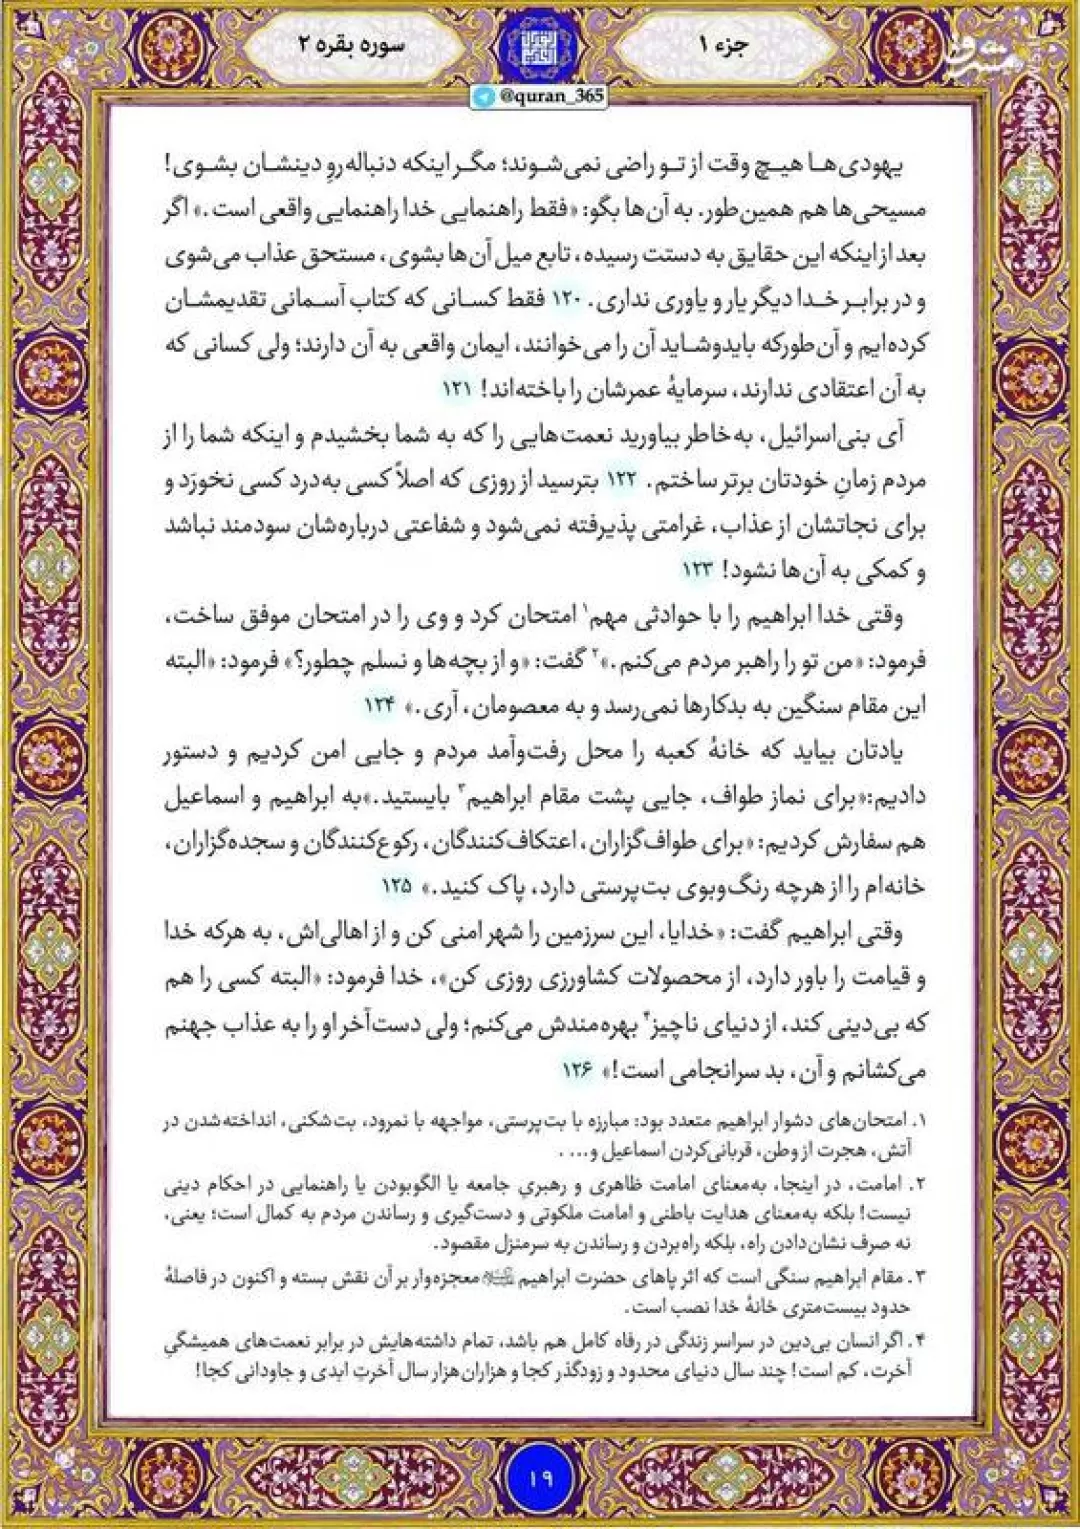 جزء ۱
سوره بقره ۲
@quran_365
مشرق
یهودی‌ها هیچ وقت از تو راضی نمی‌شوند؛ مگر اینکه دنباله‌روِ دینشان بشوی!
مسیحی‌ها هم همین‌طور. به آن‌ها بگو: «فقط راهنمایی خدا راهنمایی واقعی است.» اگر
بعد از اینکه این حقایق به دستت رسیده، تابع میل آن‌ها بشوی، مستحق عذاب می‌شوی
و در برابر خدا دیگر یار و یاوری نداری. ۱۲۰ فقط کسانی که کتاب آسمانی تقدیمشان
کرده‌ایم و آن‌طورکه بایدوشاید آن را می‌خوانند، ایمان واقعی به آن دارند؛ ولی کسانی که
به آن اعتقادی ندارند، سرمایهٔ عمرشان را باخته‌اند! ۱۲۱
آی بنی‌اسرائیل، به‌خاطر بیاورید نعمت‌هایی را که به شما بخشیدم و اینکه شما را از
مردم زمانِ خودتان برتر ساختم. ۱۲۲ بترسید از روزی که اصلاً کسی به‌درد کسی نخورَد و
برای نجاتشان از عذاب، غرامتی پذیرفته نمی‌شود و شفاعتی درباره‌شان سودمند نباشد
و کمکی به آن‌ها نشود! ۱۲۳
وقتی خدا ابراهیم را با حوادثی مهم۱ امتحان کرد و وی را در امتحان موفق ساخت،
فرمود: «من تو را راهبر مردم می‌کنم.»۲ گفت: «و از بچه‌ها و نسلم چطور؟» فرمود: «البته
این مقام سنگین به بدکارها نمی‌رسد و به معصومان، آری.» ۱۲۴
یادتان بیاید که خانهٔ کعبه را محل رفت‌وآمد مردم و جایی امن کردیم و دستور
دادیم:«برای نماز طواف، جایی پشت مقام ابراهیم۳ بایستید.»به ابراهیم و اسماعیل
هم سفارش کردیم: «برای طواف‌گزاران، اعتکاف‌کنندگان، رکوع‌کنندگان و سجده‌گزاران،
خانه‌ام را از هرچه رنگ‌وبوی بت‌پرستی دارد، پاک کنید.» ۱۲۵
وقتی ابراهیم گفت: «خدایا، این سرزمین را شهر امنی کن و از اهالی‌اش، به هرکه خدا
و قیامت را باور دارد، از محصولات کشاورزی روزی کن»، خدا فرمود: «البته کسی را هم
که بی‌دینی کند، از دنیای ناچیز۴ بهره‌مندش می‌کنم؛ ولی دست‌آخر او را به عذاب جهنم
می‌کشانم و آن، بد سرانجامی است!» ۱۲۶
۱. امتحان‌های دشوار ابراهیم متعدد بود: مبارزه با بت‌پرستی، مواجهه با نمرود، بت‌شکنی، انداخته‌شدن در
آتش، هجرت از وطن، قربانی‌کردن اسماعیل و... .
۲. امامت، در اینجا، به‌معنای امامت ظاهری و رهبریِ جامعه یا الگوبودن یا راهنمایی در احکام دینی
نیست! بلکه به‌معنای هدایت باطنی و امامت ملکوتی و دست‌گیری و رساندن مردم به کمال است؛ یعنی،
نه صرف نشان‌دادن راه، بلکه راه‌بردن و رساندن به سرمنزل مقصود.
۳. مقام ابراهیم سنگی است که اثر پاهای حضرت ابراهیم معجزه‌وار بر آن نقش بسته و اکنون در فاصلهٔ
حدود بیست‌متری خانهٔ خدا نصب است.
۴. اگر انسان بی‌دین در سراسر زندگی در رفاه کامل هم باشد، تمام داشته‌هایش در برابر نعمت‌های همیشگیِ
آخرت، کم است! چند سال دنیای محدود و زودگذر کجا و هزاران‌هزار سال آخرتِ ابدی و جاودانی کجا!
۱۹